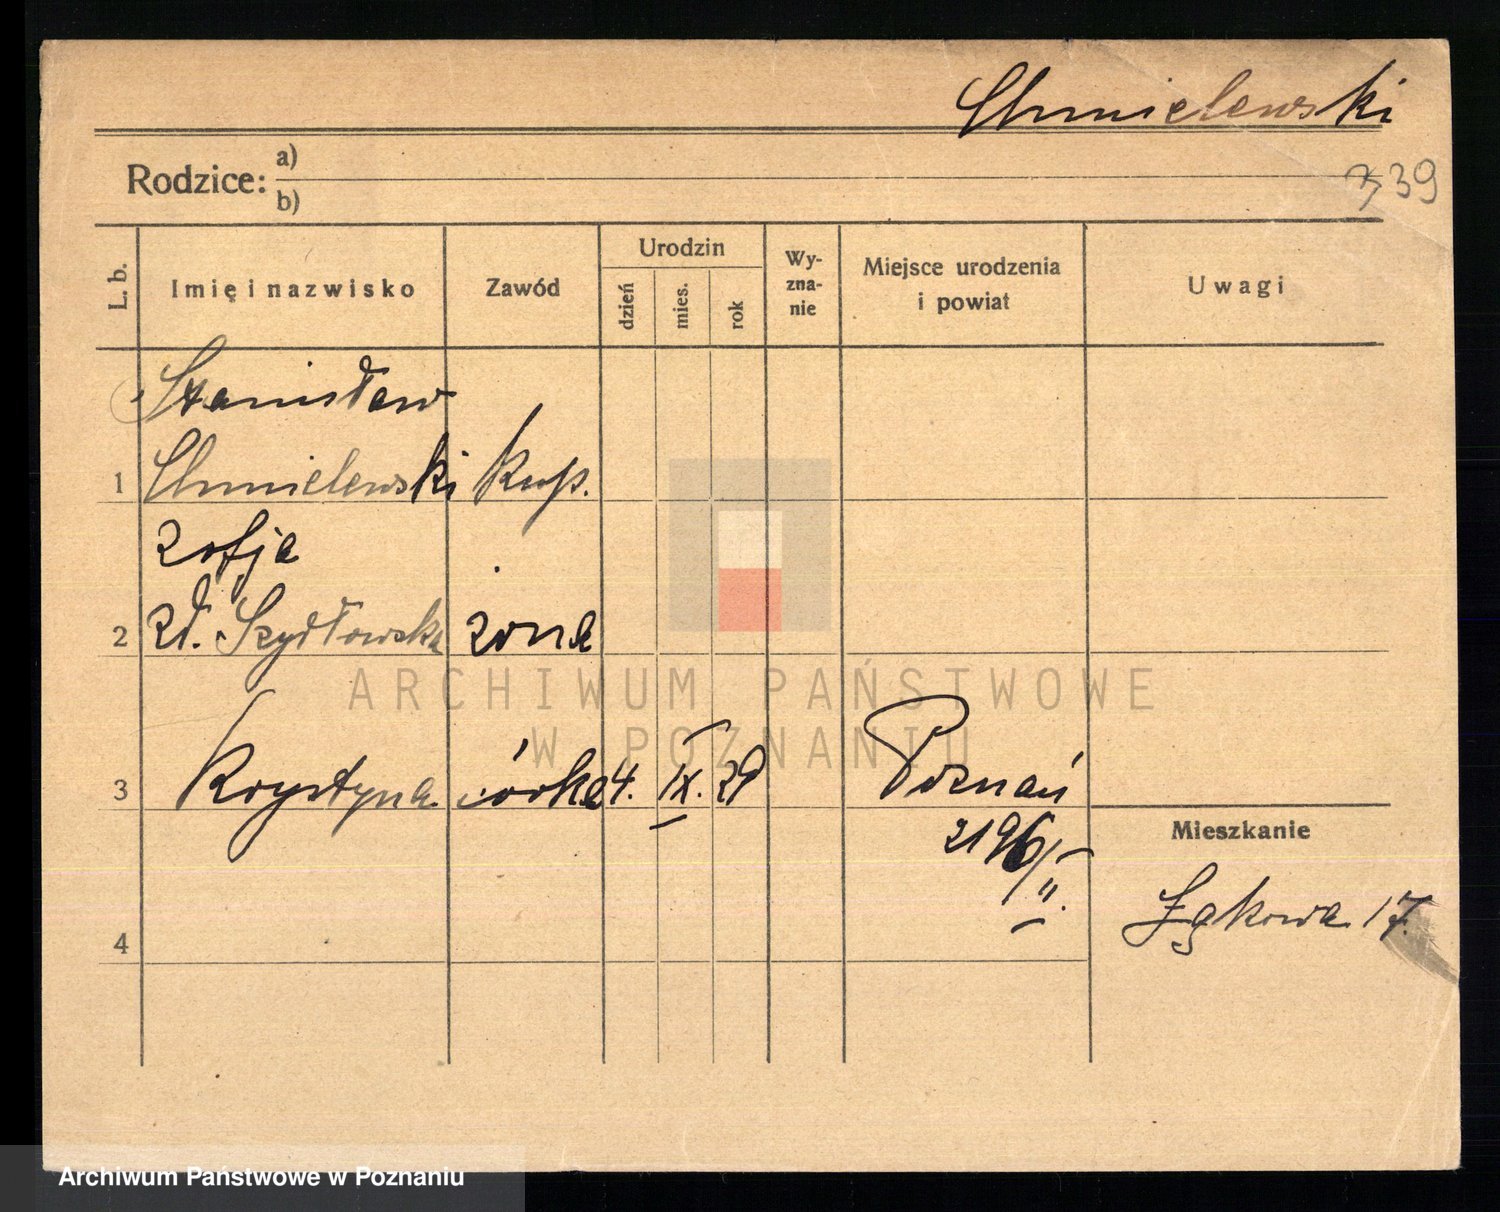 Chmielewski
Rodzice: a)
b)
339
L. b.
Imię i nazwisko
Zawód
Urodzin
dzień
mies.
rok
Wy-
zna-
nie
Miejsce urodzenia
i powiat
Uwagi
Stanisław
1 Chmielewski kup.
Zofja
2 zd. Szydłowska żona
3 Krystyna córka 4. IX. 29 Poznań
2196/II.
Mieszkanie
Łąkowa 17.
4
ARCHIWUM PAŃSTWOWE
W POZNANIU
Archiwum Państwowe w Poznaniu